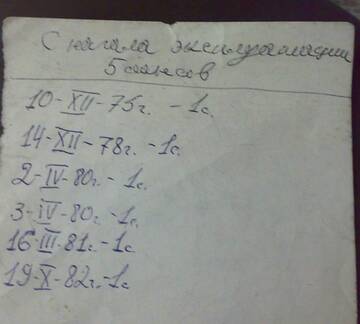 С начала эксплуатации
10-XII-75г. -1с.
14-XII-78г. -1с.
2-IV-80г. -1с.
3-IV-80г. -1с.
16-III-81г. -1с
19-X-82г. -1с